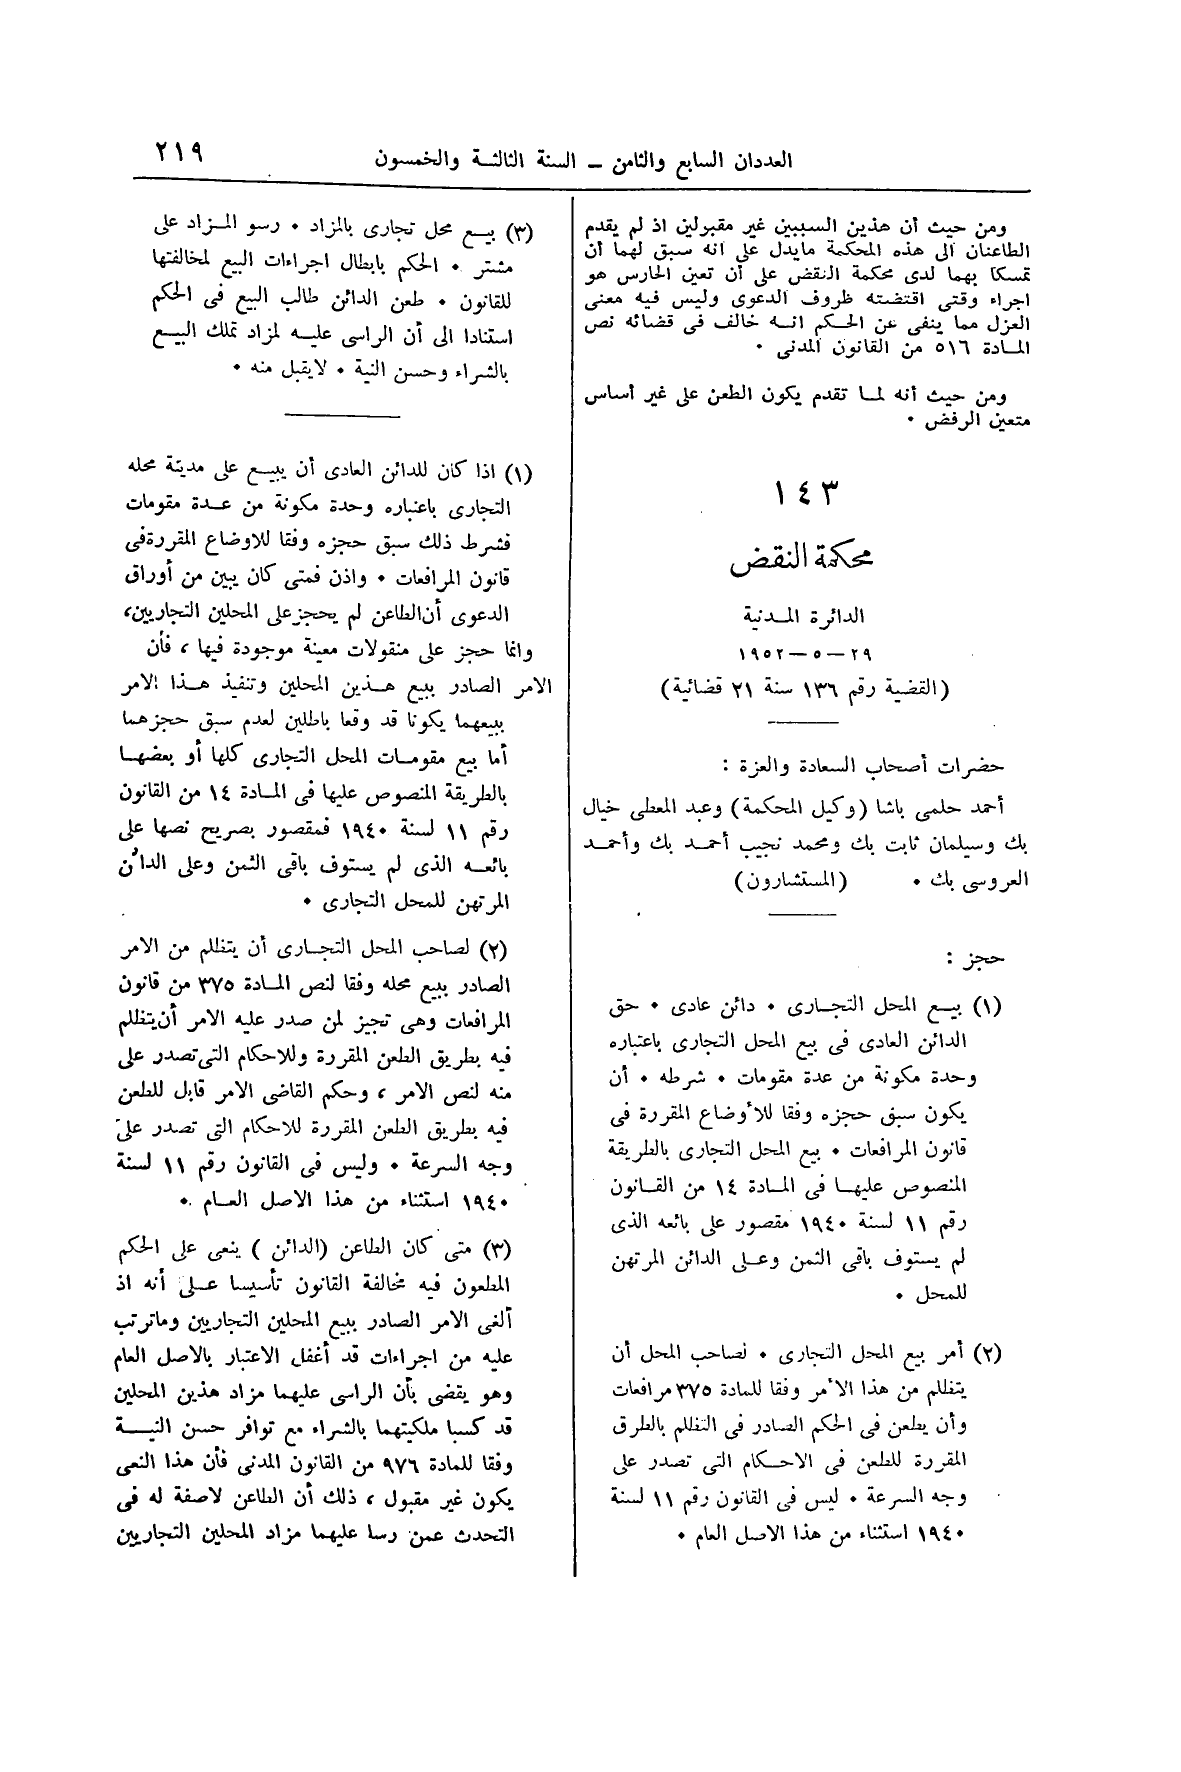 العددان السابع والثامن – السنة الثالثة والخمسون
٢١٩
ومن حيث أن هذين السببين غير مقبولين اذ لم يقدم
الطاعنان الى هذه المحكمة مايدل على انه سبق لهما أن
تمسكا بهما لدى محكمة النقض على أن تعين الحارس هو
اجراء وقتى اقتضته ظروف الدعوى وليس فيه معنى
العزل مما ينفى عن الحكم انه خالف فى قضائه نص
المادة ٥١٦ من القانون المدنى .
ومن حيث أنه لما تقدم يكون الطعن على غير أساس
متعين الرفض .
١٤٣
محكمة النقض
الدائرة المدنية
٢٩ – ٥ – ١٩٥٢
(القضية رقم ١٣٦ سنة ٢١ قضائية)
حضرات أصحاب السعادة والعزة :
أحمد حلمى باشا (وكيل المحكمة) وعبد المعطى خيال
بك وسيلمان ثابت بك ومحمد نجيب أحمد بك وأحمد
العروسى بك . (المستشارون)
حجز :
(١) بيع المحل التجارى . دائن عادى . حق
الدائن العادى فى بيع المحل التجارى باعتباره
وحدة مكونة من عدة مقومات . شرطه . أن
يكون سبق حجزه وفقا للأوضاع المقررة فى
قانون المرافعات . بيع المحل التجارى بالطريقة
المنصوص عليها فى المادة ١٤ من القانون
رقم ١١ لسنة ١٩٤٠ مقصور على بائعه الذى
لم يستوف باقى الثمن وعلى الدائن المرتهن
للمحل .
(٢) أمر بيع المحل التجارى . لصاحب المحل أن
يتظلم من هذا الأمر وفقا للمادة ٣٧٥ مرافعات
وأن يطعن فى الحكم الصادر فى التظلم بالطرق
المقررة للطعن فى الاحكام التى تصدر على
وجه السرعة . ليس فى القانون رقم ١١ لسنة
١٩٤٠ استثناء من هذا الاصل العام .
(٣) بيع محل تجارى بالمزاد . رسو المزاد على
مشتر . الحكم بابطال اجراءات البيع لمخالفتها
للقانون . طعن الدائن طالب البيع فى الحكم
استنادا الى أن الراسى عليه لمزاد تملك البيع
بالشراء وحسن النية . لايقبل منه .
(١) اذا كان للدائن العادى أن يبيع على مدينة محله
التجارى باعتباره وحدة مكونة من عدة مقومات
فشرط ذلك سبق حجزه وفقا للاوضاع المقررةفى
قانون المرافعات . واذن فمتى كان يبين من أوراق
الدعوى أن الطاعن لم يحجزعلى المحلين التجاريين،
وانما حجز على منقولات معينة موجودة فيها ، فأن
الامر الصادر ببيع هذين المحلين وتنفيذ هذا الامر
ببيعهما يكونا قد وقعا باطلين لعدم سبق حجزهما
أما بيع مقومات المحل التجارى كلها أو بعضها
بالطريقة المنصوص عليها فى المادة ١٤ من القانون
رقم ١١ لسنة ١٩٤٠ فمقصور بصريح نصها على
بائعه الذى لم يستوف باقى الثمن وعلى الدائن
المرتهن للمحل التجارى .
(٢) لصاحب المحل التجارى أن يتظلم من الامر
الصادر ببيع محله وفقا لنص المادة ٣٧٥ من قانون
المرافعات وهى تجيز لمن صدر عليه الامر أن يتظلم
فيه بطريق الطعن المقررة وللاحكام التى تصدر على
منه لنص الامر ، وحكم القاضى الامر قابل للطعن
فيه بطريق الطعن المقررة للاحكام التى تصدر على
وجه السرعة . وليس فى القانون رقم ١١ لسنة
١٩٤٠ استثناء من هذا الاصل العام .
(٣) متى كان الطاعن (الدائن ) ينعى على الحكم
المطعون فيه مخالفة القانون تأسيسا على أنه اذ
ألغى الامر الصادر ببيع المحلين التجاريين وماترتب
عليه من اجراءات قد أغفل الاعتبار بالاصل العام
وهو يقضى بأن الراسى عليهما مزاد هذين المحلين
قد كسبا ملكيتهما بالشراء مع توافر حسن النية
وفقا للمادة ٩٧٦ من القانون المدنى فأن هذا النعى
يكون غير مقبول ، ذلك أن الطاعن لاصفة له فى
التحدث عمن رسا عليهما مزاد المحلين التجاريين